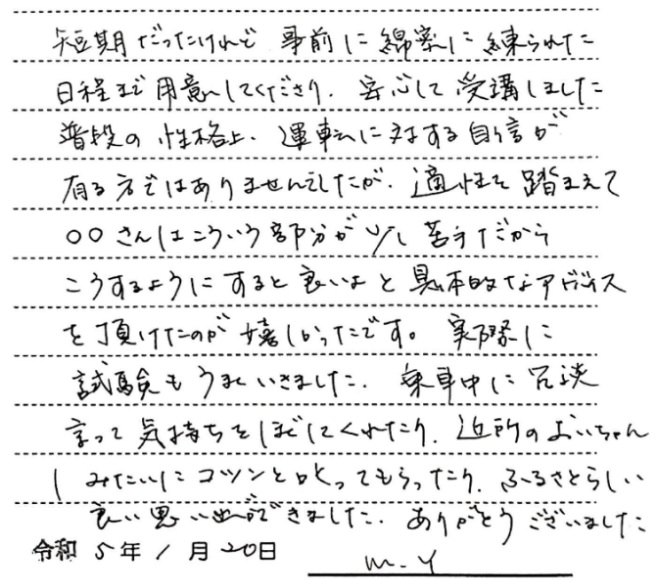 短期だったけれど 事前に綿密に練られた
日程まで用意してくださり、安心して受講しました
普段の性格上、運転に対する自信が
有る方ではありませんでしたが、適性を踏まえて
〇〇さんはこういう部分が少し苦手だから
こうするようにすると良いよと具体的なアドバイス
を頂けたのが嬉しかったです。実際に
試験もうまくいきました。乗車中に冗談
言って気持ちをほぐしてくれたり、近所のおじちゃん
みたいにコツンと叱ってもらったり、ふるさとらしい
良い思い出ができました。ありがとうございました
令和 5年 1月 20日
M.Y